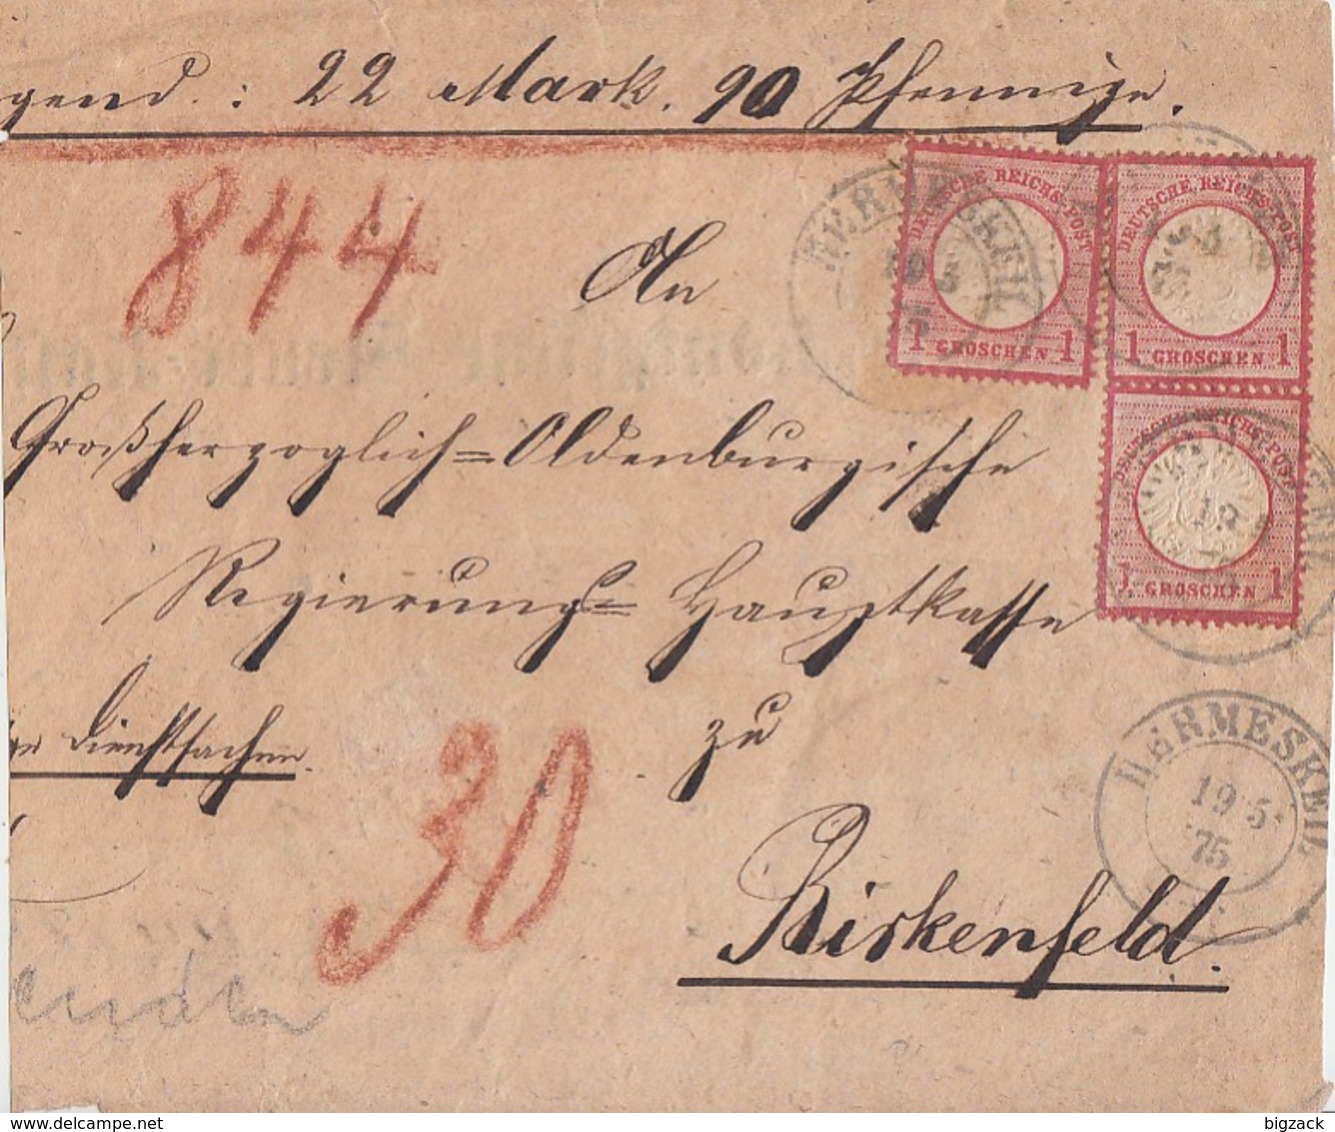 gend: 22 Mark. 90 Pfennige.
844
An
Großherzoglich=Oldenburgische
Regierungs=Hauptkasse
zu
Dienstsachen.
30
Birkenfeld.
DEUTSCHE REICHS-POST
1 GROSCHEN 1
DEUTSCHE REICHS-POST
1 GROSCHEN 1
DEUTSCHE REICHS-POST
1 GROSCHEN 1
HERMESKEIL
19 5
HERMESKEIL
19 5
75
www.delcampe.net
bigzack